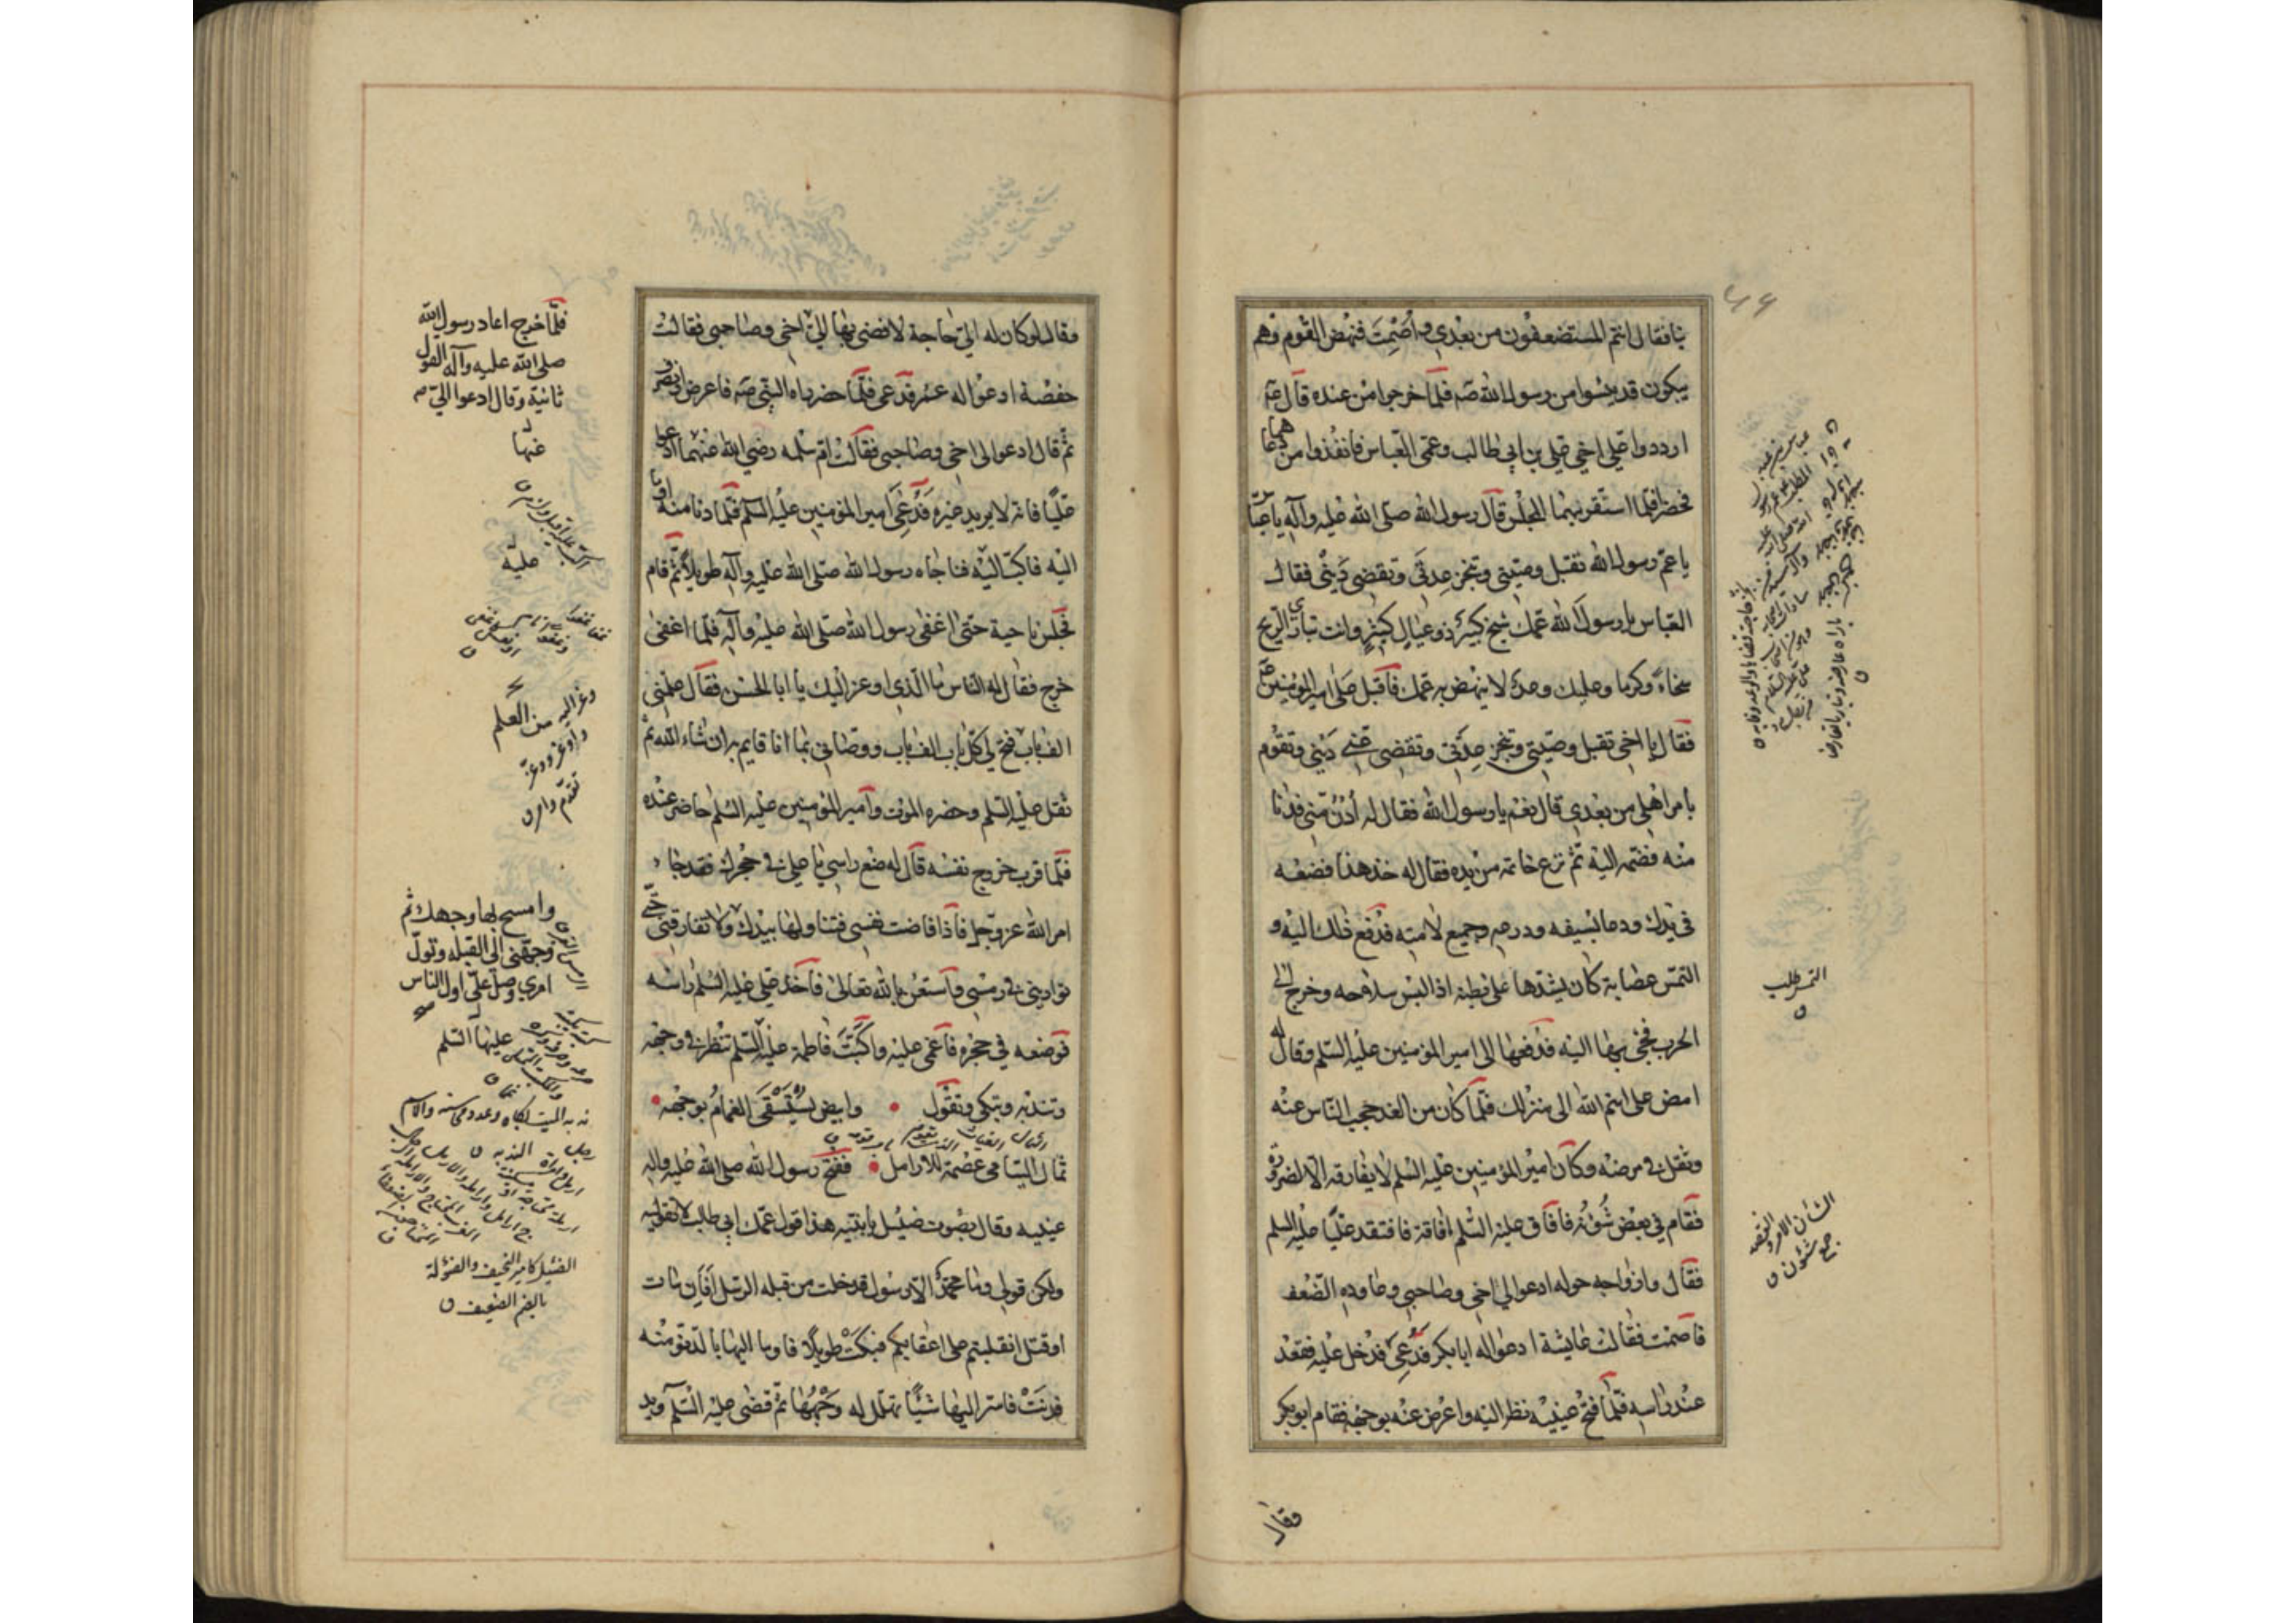 بنا فقال انتم المستضعفون من بعدي وأصْمِتَ فنهض القوم وهم
يبكون قد يئسوا من رسول الله صه فلما خرجوا من عنده قال صه
ارددوا علي اخي علي بن ابي طالب وعمى العباس فانفذوا من دعاهما
فحضرا فلما استقر بهما المجلس قال رسول الله صلى الله عليه وآله يا عباس
يا عم رسول الله تقبل وصيتي وتنجز عِدَتى وتقضى دَيْنى فقال
العباس يا رسول الله عمّك شيخ كبيرٌ ذو عيالٍ كثيرٍ وانت تبارى الريح
سخاءً وكرما وعليك وعدٌ لا ينهض به عمك فاقبل على امير المؤمنين عم
فقال يا اخى تقبل وصيتى وتنجز عِدَتى وتقضى عنى دَينى وتقوم
بامر اهلى من بعدى قال نعم يا رسول الله فقال له أدْنُ منى فدنا
منه فضمه اليه ثم نزع خاتمه من يده فقال له خذ هذا فضعه
فى يدك ودعا بسيفه ودرعه وجميع لامته فدفع ذلك اليه و
التمس عصابة كان يشدها على بطنه اذا لبس سلاحه وخرج الى
الحرب فجئ بها اليه فدفعها الى امير المؤمنين عليه السلم وقال له
امض على اسم الله الى منزلك فلما كان من الغد حجب الناس عنه
وثقل فى مرضه وكان امير المؤمنين عليه السلم لا يفارقه الا لضرورة
فقام في بعض شُؤُنه فافاق عليه السلم افاقة فافتقد عليًّا عليه السلم
فقال وازواجه حوله ادعوا لي اخى وصاحبى وعاوده الضعف
فاصمت فقالت عايشة ادعوا له ابا بكر فدُعِىَ فدخل عليه فقعد
عند راسه فلما فتح عينيه نظر اليه واعرض عنه بوجهه فقام ابو بكر
التمس طلب
الشان الامر والقصه
ج شئون
فقال
وقال لو كان له اليّ حاجة لافضى بها اليّ اخى وصاحبى فقالت
حفصة ادعوا له عمر فدعى فلما حضر راه النبى صه فاعرض
ثم قال ادعوا لى اخى وصاحبى فقالت ام سلمه رضي الله عنها ادعوا
عليًا فانه لا يريد غيره فدُعِىَ امير المؤمنين عليه السلم فلما دنا منه اوما
اليه فاكبّ اليه فناجاه رسول الله صلى الله عليه وآله طويلاً ثم قام
فجلس ناحية حتى اغفى رسول الله صلى الله عليه وآله فلما اغفى
خرج فقال له الناس ما الذى اوعز اليك يا ابا الحسن فقال علمنى
الف باب فتح لى كل باب الف باب ووصّانى بما انا قايم به ان شاء الله ثم
ثقل عليه السلم وحضره الموت وامير المؤمنين عليه السلم حاضر عنده
فلما قرب خروج نفسه قال له ضع راسى يا على فى حجرك فقد جاء
امر الله عز وجل فاذا فاضت نفسى فتناولها بيدك ولا تفارقنى حتى
توارينى فى رمسى واستعن بالله تعالى فاخذ على عليه السلم راسه
فوضعه في حجره فاغمى عليه واكبّت فاطمة عليه السلم تنظر فى وجهه
وتندبه وتبكى وتقول • وابيض يُسْتَسْقَى الغمامُ بوجهه •
ثمال اليتامى عصمة للارامل • ففتح رسول الله صلى الله عليه واله
عينيه وقال بصوت ضئيل يا بنتيه هذا قول عمك ابى طالب لا تقوليه
ولكن قولى وما محمدٌ الا رسول قد خلت من قبله الرسل أفإن مات
او قتل انقلبتم على اعقابكم فبكت طويلا فاوما اليها بالدنو منه
فدنت فاسر اليها شيئًا تهلل له وجهها ثم قضى عليه السلم ويد
فلما خرج اعاد رسول الله
صلى الله عليه وآله القول
ثانية وقال ادعوا الى
عنها
عليه
من العلم
تقدم وامر
وامسح بها وجهك ثم
وجهنى الى القبله وتول
امرى وصل على اول الناس
عليها السلم
ندبه الميت بكاه وعدد محاسنه والاسم
الندبه
الضئيل كامير النحيف والضؤلة
بالضم الضعيف